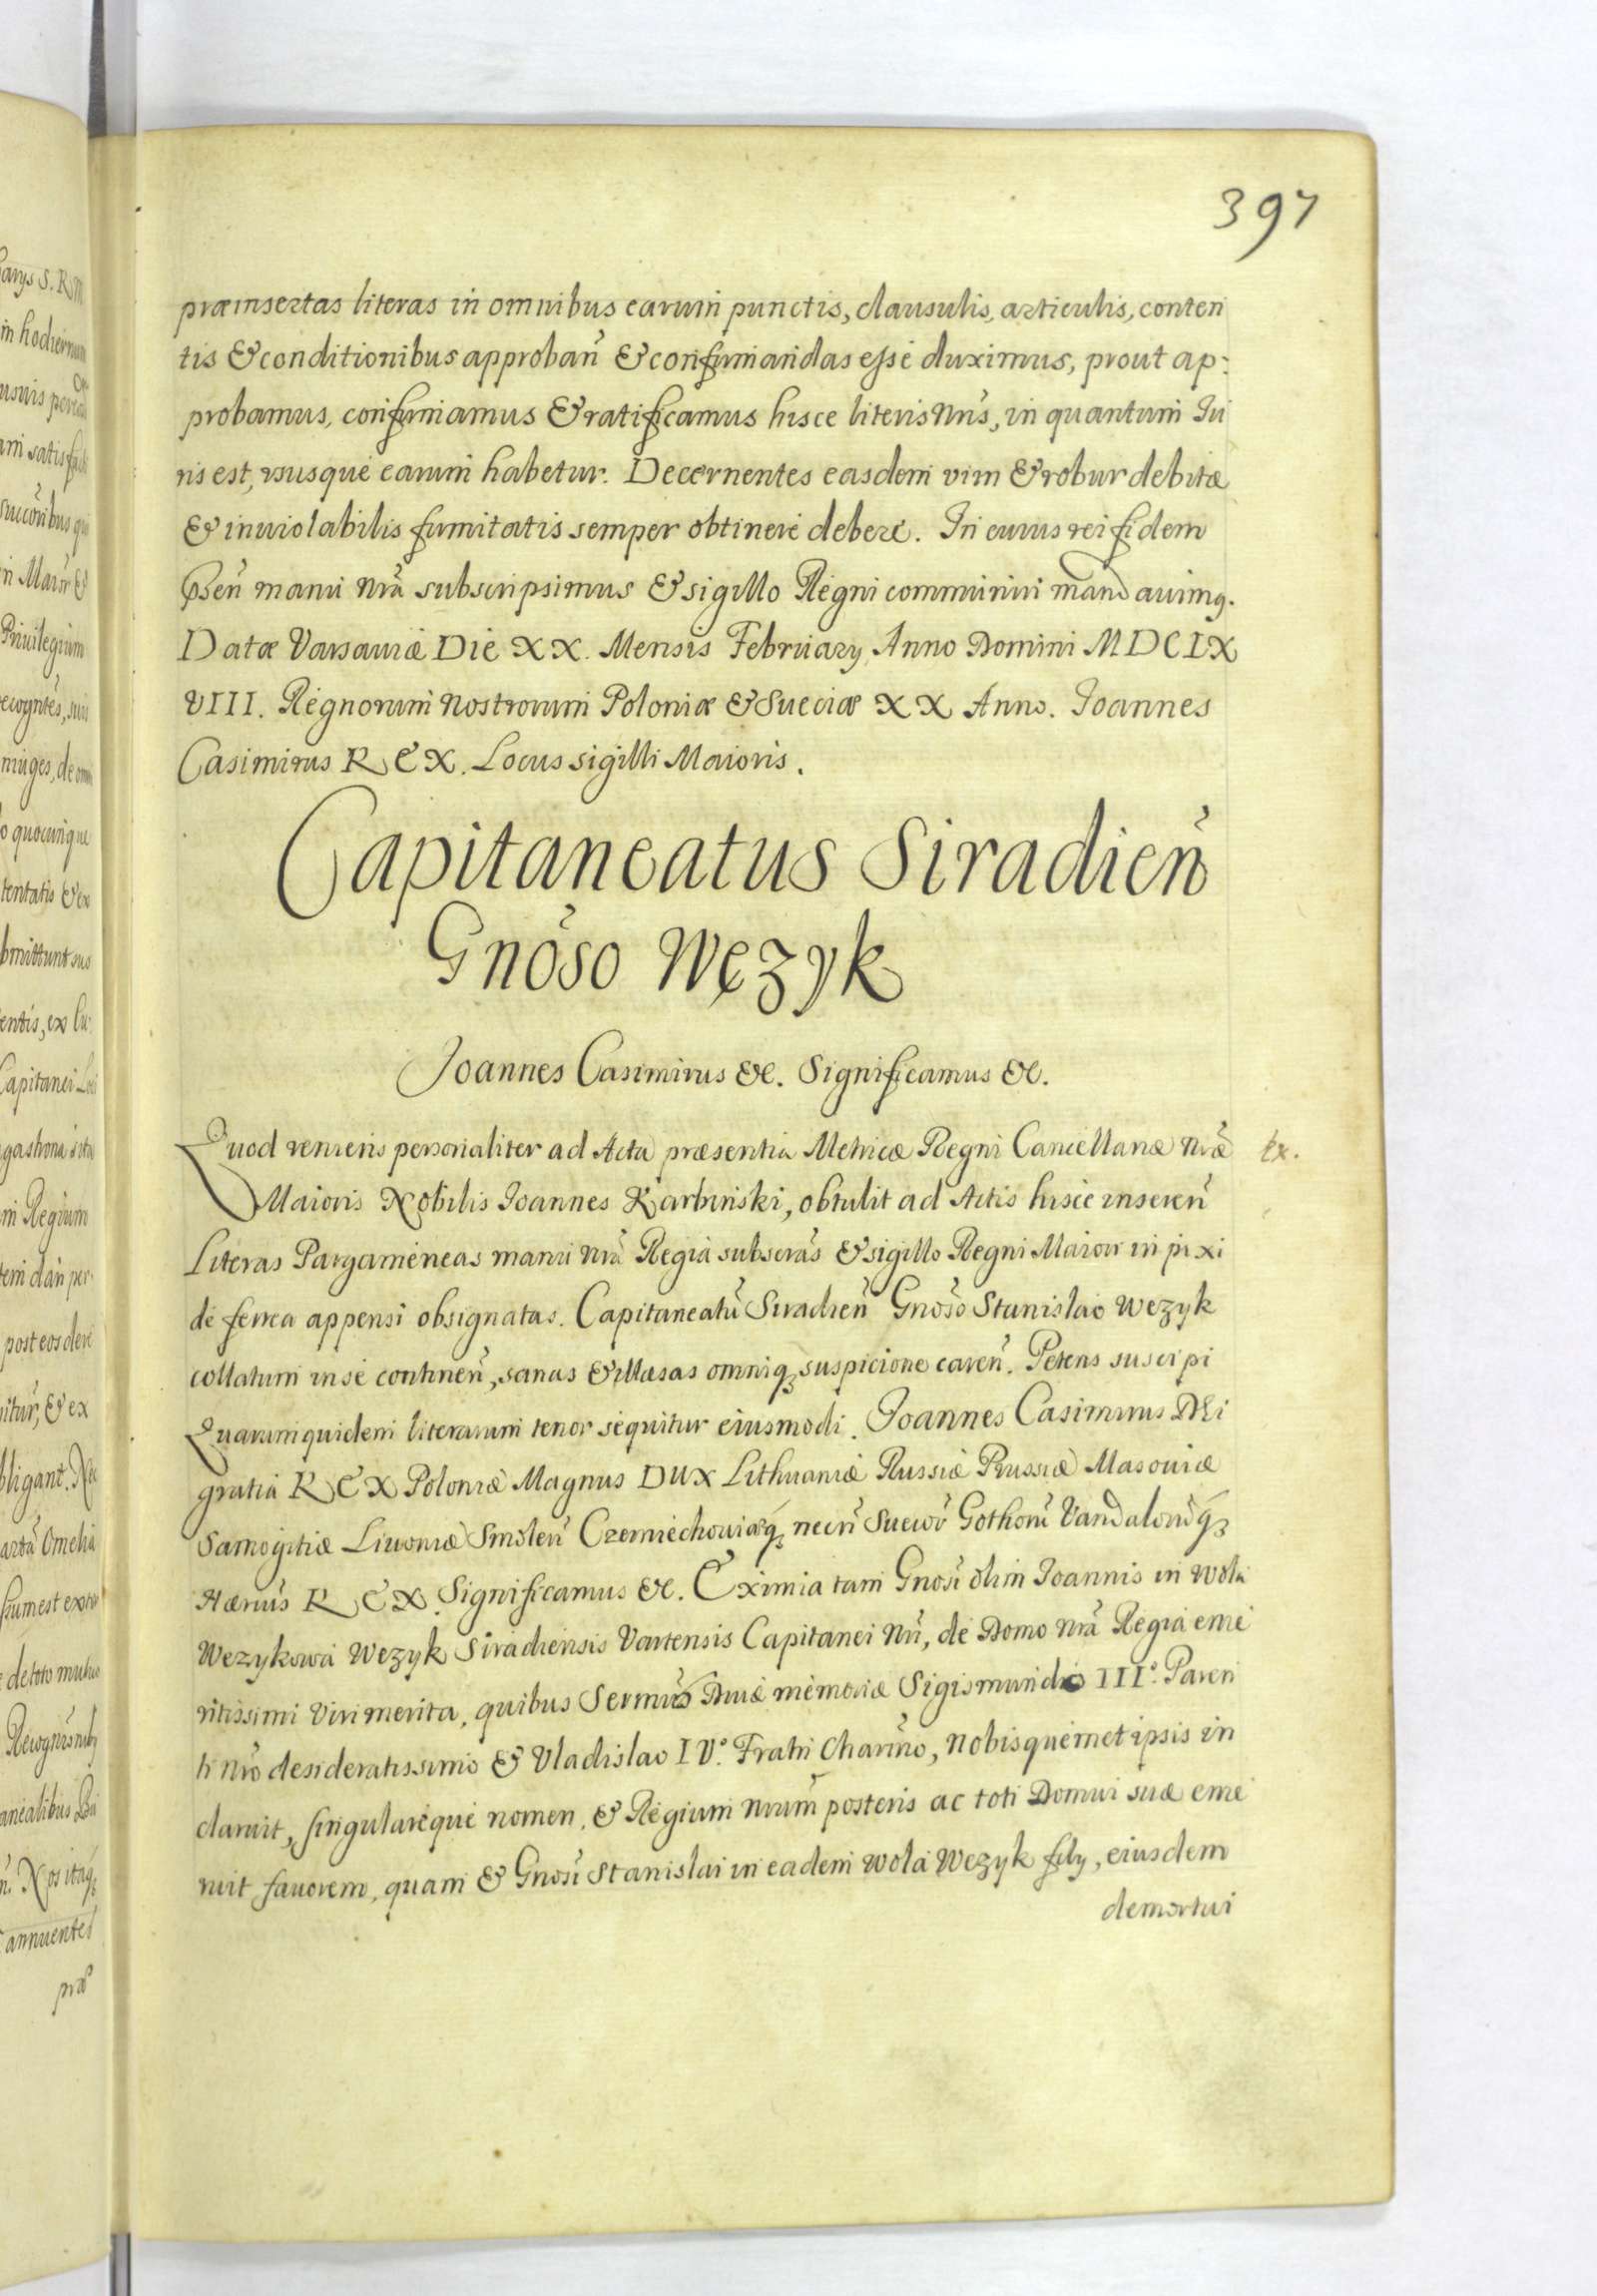 397
præinsertas literas in omnibus earum punctis, clausulis, articulis, conten
tis & conditionibus approbań & confirmandas esse duximus, prout ap:
probamus, confirmamus & ratificamus hisce literis Nrís, in quantum Iu
ris est, ususque earum habetur. Decernentes easdem vim & robur debitæ
& inviolabilis firmitatis semper obtinere debere. In cuius rei fidem
Pseń manu Nrá subscripsimus & sigillo Regni communiri mandavimq.
Datæ Varsaviæ Die XX. Mensis February Anno Domini MDCLX
VIII. Regnorum Nostrorum Poloniæ & Sueciæ XX Anno. Joannes
Casimirus REX. Locus sigilli Maioris.
Capitaneatus Siradień
Gnóso Wężyk
Joannes Casimirus &c. Significamus &c.
Quod veniens personaliter ad Acta præsentia Metricæ Regni Cancellariæ Nrǽ
Ex.
Maioris Nobilis Joannes Karbinski, obtulit ad Actis hisce insereń
Literas Pargameneas manu Nrá Regia subscrás & sigillo Regni Maiori in pixi
de ferrea appensi obsignatas. Capitaneatú Siradień Gnóso Stanislao Wezyk
collatum in se contineń, sanas & illæsas omniq; suspicione careń. Petens suscipi
Quarum quidem literarum tenor sequitur eiusmodi. Joannes Casimirus DEi
gratia REX Poloniæ Magnus DUX Lithuaniæ Russiæ Prussiæ Masoviæ
Samogitiæ Livoniæ Smoleń Czerniechoviæq; necń Suecoŕ Gothorú Vandalorúq;
Hæriús REX. Significamus &c. Eximia tam Gnosi olim Joannis in Wola
Wezykowa Wezyk Siradiensis Vartensis Capitanei Nrí, de Domo Nrá Regia eme
ritissimi Viri merita, quibus Sermús Divæ memoriæ Sigismundo III°. Paren
ti Nró desideratissimo & Vladislao IV°. Fratri Charińo, Nobisquemet ipsis in
claruit, singulareque nomen, & Regium Nrum posteris ac toti Domui suæ eme
ruit favorem, quam & Gnosi Stanislai in eadem Wola Wezyk fily, eiusdem
demortui